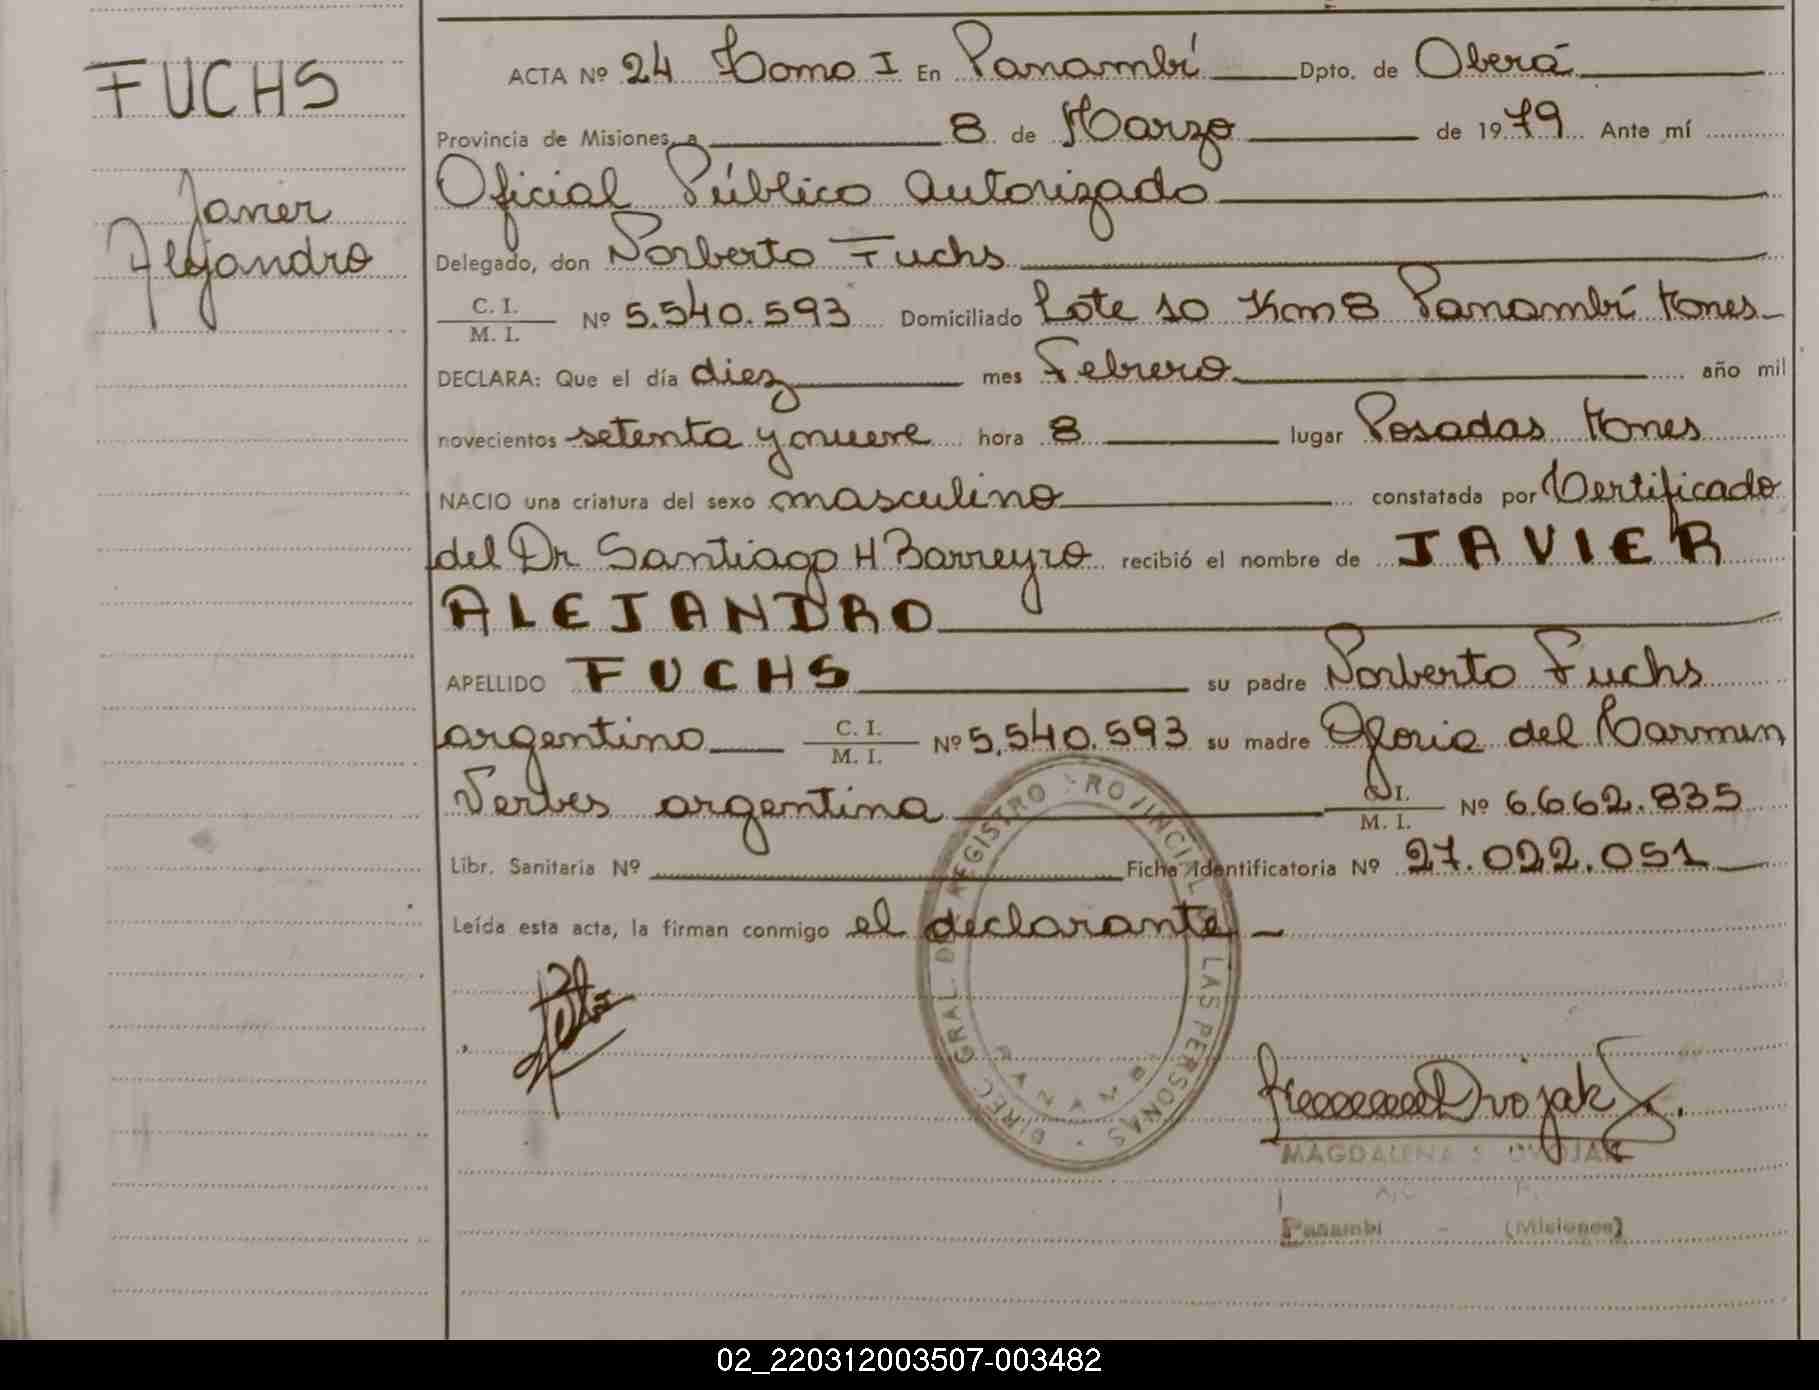 FUCHS
Javier
Alejandro
ACTA Nº 24 Tomo I En Panambí Dpto. de Oberá
Provincia de Misiones, a 8 de Marzo de 1979 Ante mí
Oficial Público autorizado
Delegado, don Norberto Fuchs
C. I.
M. I.
Nº 5.540.593 Domiciliado Lote 10 Km 8 Panambí Mones
DECLARA: Que el día diez mes Febrero año mil
novecientos setenta y nueve hora 8 lugar Posadas Mones
NACIO una criatura del sexo masculino constatada por Certificado
del Dr Santiago H Barreyro recibió el nombre de JAVIER
ALEJANDRO
APELLIDO FUCHS su padre Norberto Fuchs
argentino C. I. M. I. Nº 5.540.593 su madre Gloria del Carmen
Verbes argentina C. I. M. I. Nº 6.662.835
Libr. Sanitaria Nº Ficha Identificatoria Nº 27.022.051
Leída esta acta, la firman conmigo el declarante
DIREC. GRAL. DE REGISTRO PROVINCIAL DE LAS PERSONAS
PANAMBI
Dvojak
MAGDALENA S. DVOJAK
Panambi - (Misiones)
02_220312003507-003482